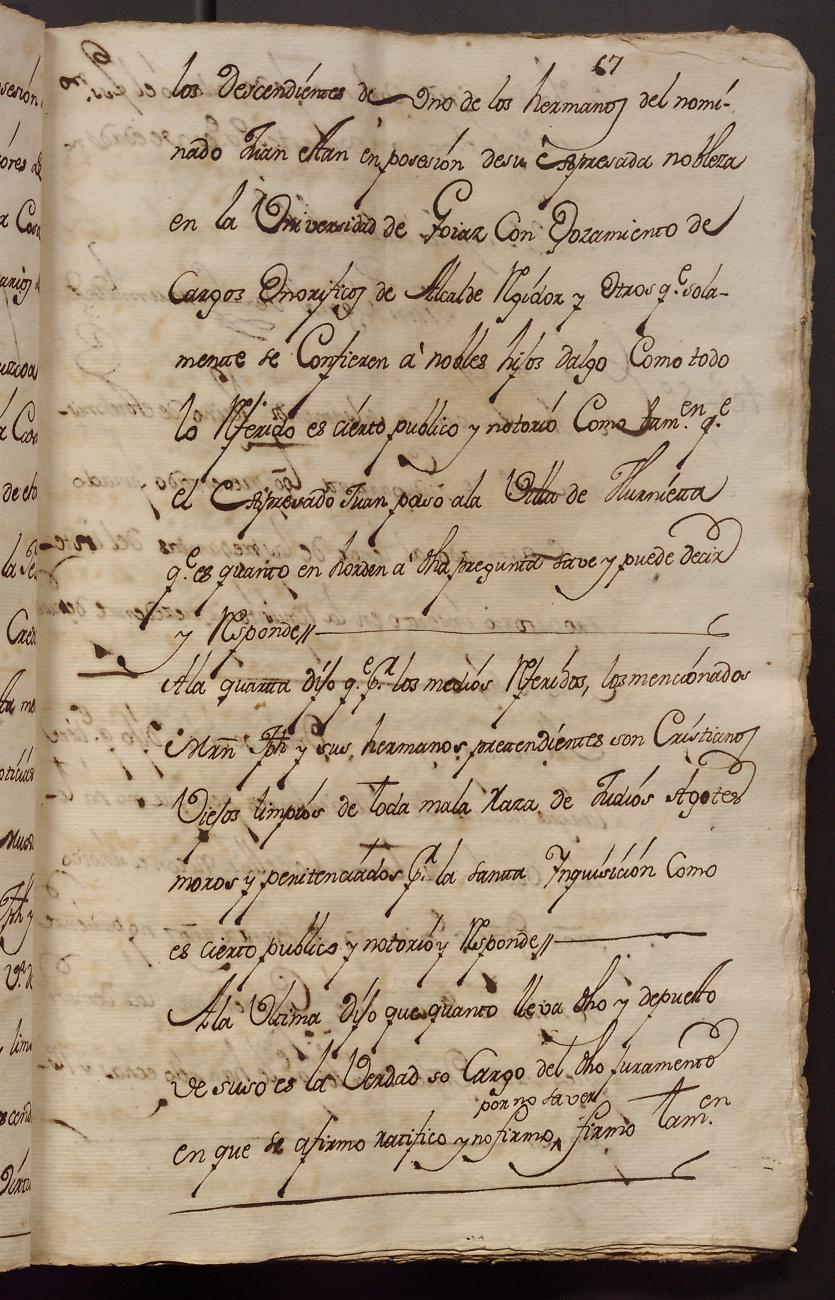 67
los Descendientes de Uno de los hermanos del nomi-
nado Juan estan en posesión de su Espresada nobleza
en la Universidad de Goiaz Con Gozamiento de
Cargos Onorificos de Alcalde Rexidor y Otros q.e sola-
mente se Confieren à nobles hijos dalgo Como todo
lo Referido es cierto publico y notorió Como tam.en q.e
el Espresado Juan pasó ala Villa de Hurnietta
q.e es quanto en horden à dha pregunta save y puede decir
y Responde //
Ala quarta dijo q.e p.r los mediós Referidos, los mencionados
Mrñ Jph y sus hermanos pretendientes son Cristianos
Viejos limpiós de toda mala Raza de Judiós Agotes
moros y penitenciados p.r la santa Ynquisición Como
es cierto publico y notorió y Responde //
Ala Ultima dijo que quanto lleva dho y depuesto
de suso es la Verdad so Cargo del dho juramento
por no saver
en que se afirmo ratifico y no firmo, firmo tam.en